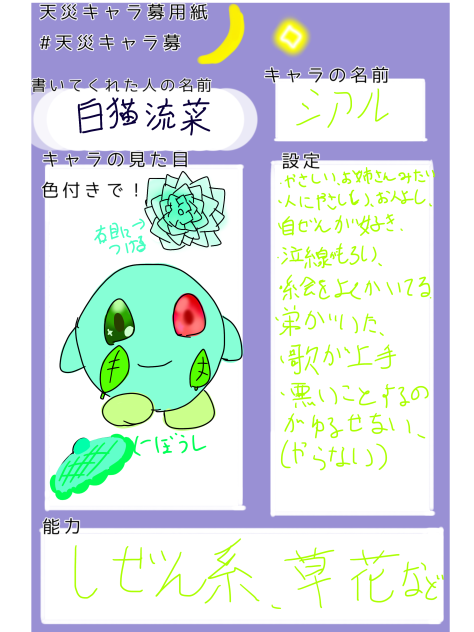 天災キャラ募用紙
#天災キャラ募
書いてくれた人の名前
白猫流菜
キャラの名前
シアル
キャラの見た目
色付きで!
右目に→
つける
←ぼうし
設定
・やさしい、お姉さんみたい
・人にやさしい、おんよし、
・自ぜんが好き、
・泣線がもろい、
・絵をよくかいてる
・弟がいた、
・歌が上手
・悪いことするの
がゆるせない、
(やらない)
能力
しぜん系、草花など